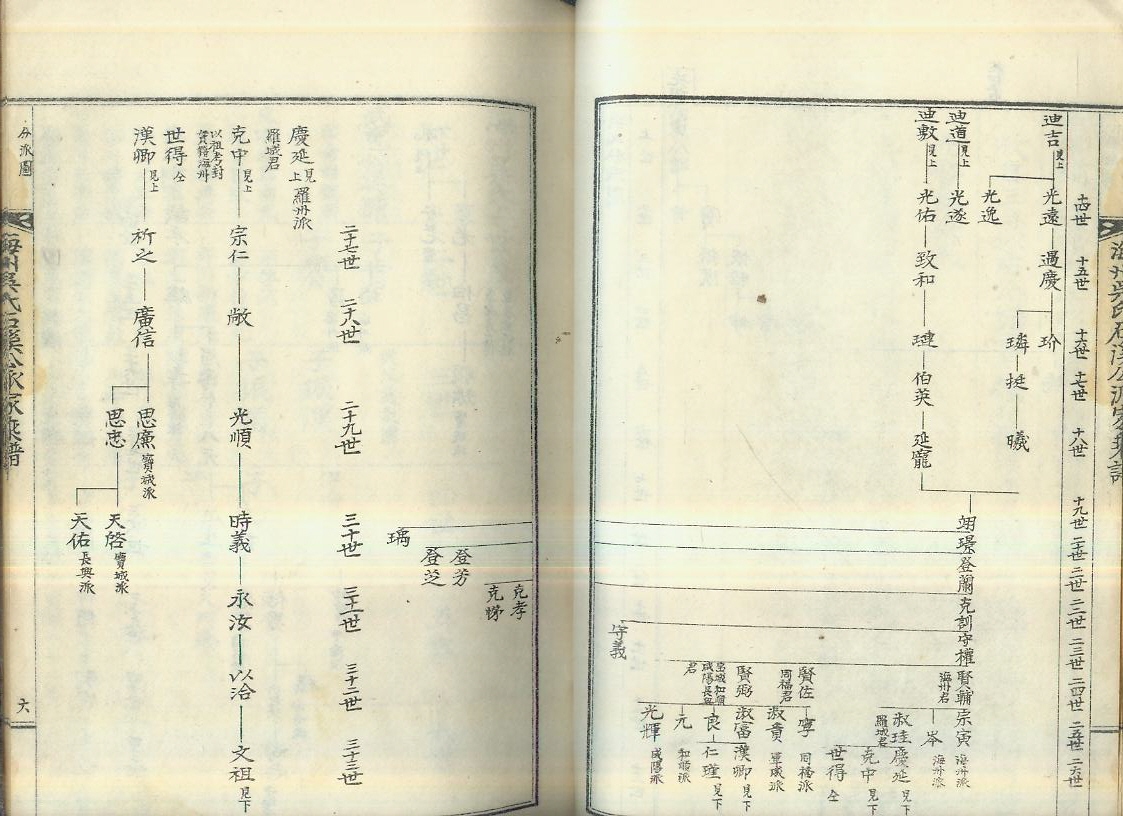 十四世
十五世
十六世
十七世
十八世
十九世
二十世
二一世
二二世
二三世
二四世
二五世
二六世
迪吉 見上
光遠
遇慶
玠
光逸
璘
挺
曦
迪道 見上
光邃
迪敷 見上
光佑
致和
璉
伯英
延寵
翊
璟
登蕭
克訓
守權
賢輔 海州君
宗寅 海州派
岑 海州派
淑珪 羅城君
慶延 見下
克中 見下
世得 仝
守義
賢佐 同福君
寧 同福派
淑貴 軍威派
賢弼
淑富
漢卿 見下
良
仁瑾 見下
元 和順派
光輝 咸陽派
克孝
克悌
登芳
登芝
瑀
二十七世
二十八世
二十九世
三十世
三十一世
三十二世
三十三世
慶延 見上 羅州派
羅城君
克中 見上
宗仁
敞
光順
時義
永汝
以洽
文祖 見下
以祖考封
貫籍海州
世得 仝
漢卿 見上
祈之
廣信
思廉 寶城派
思忠
天啓 寶城派
天佑 長興派
分派圖
海州吳氏石溪公派家乘譜
六